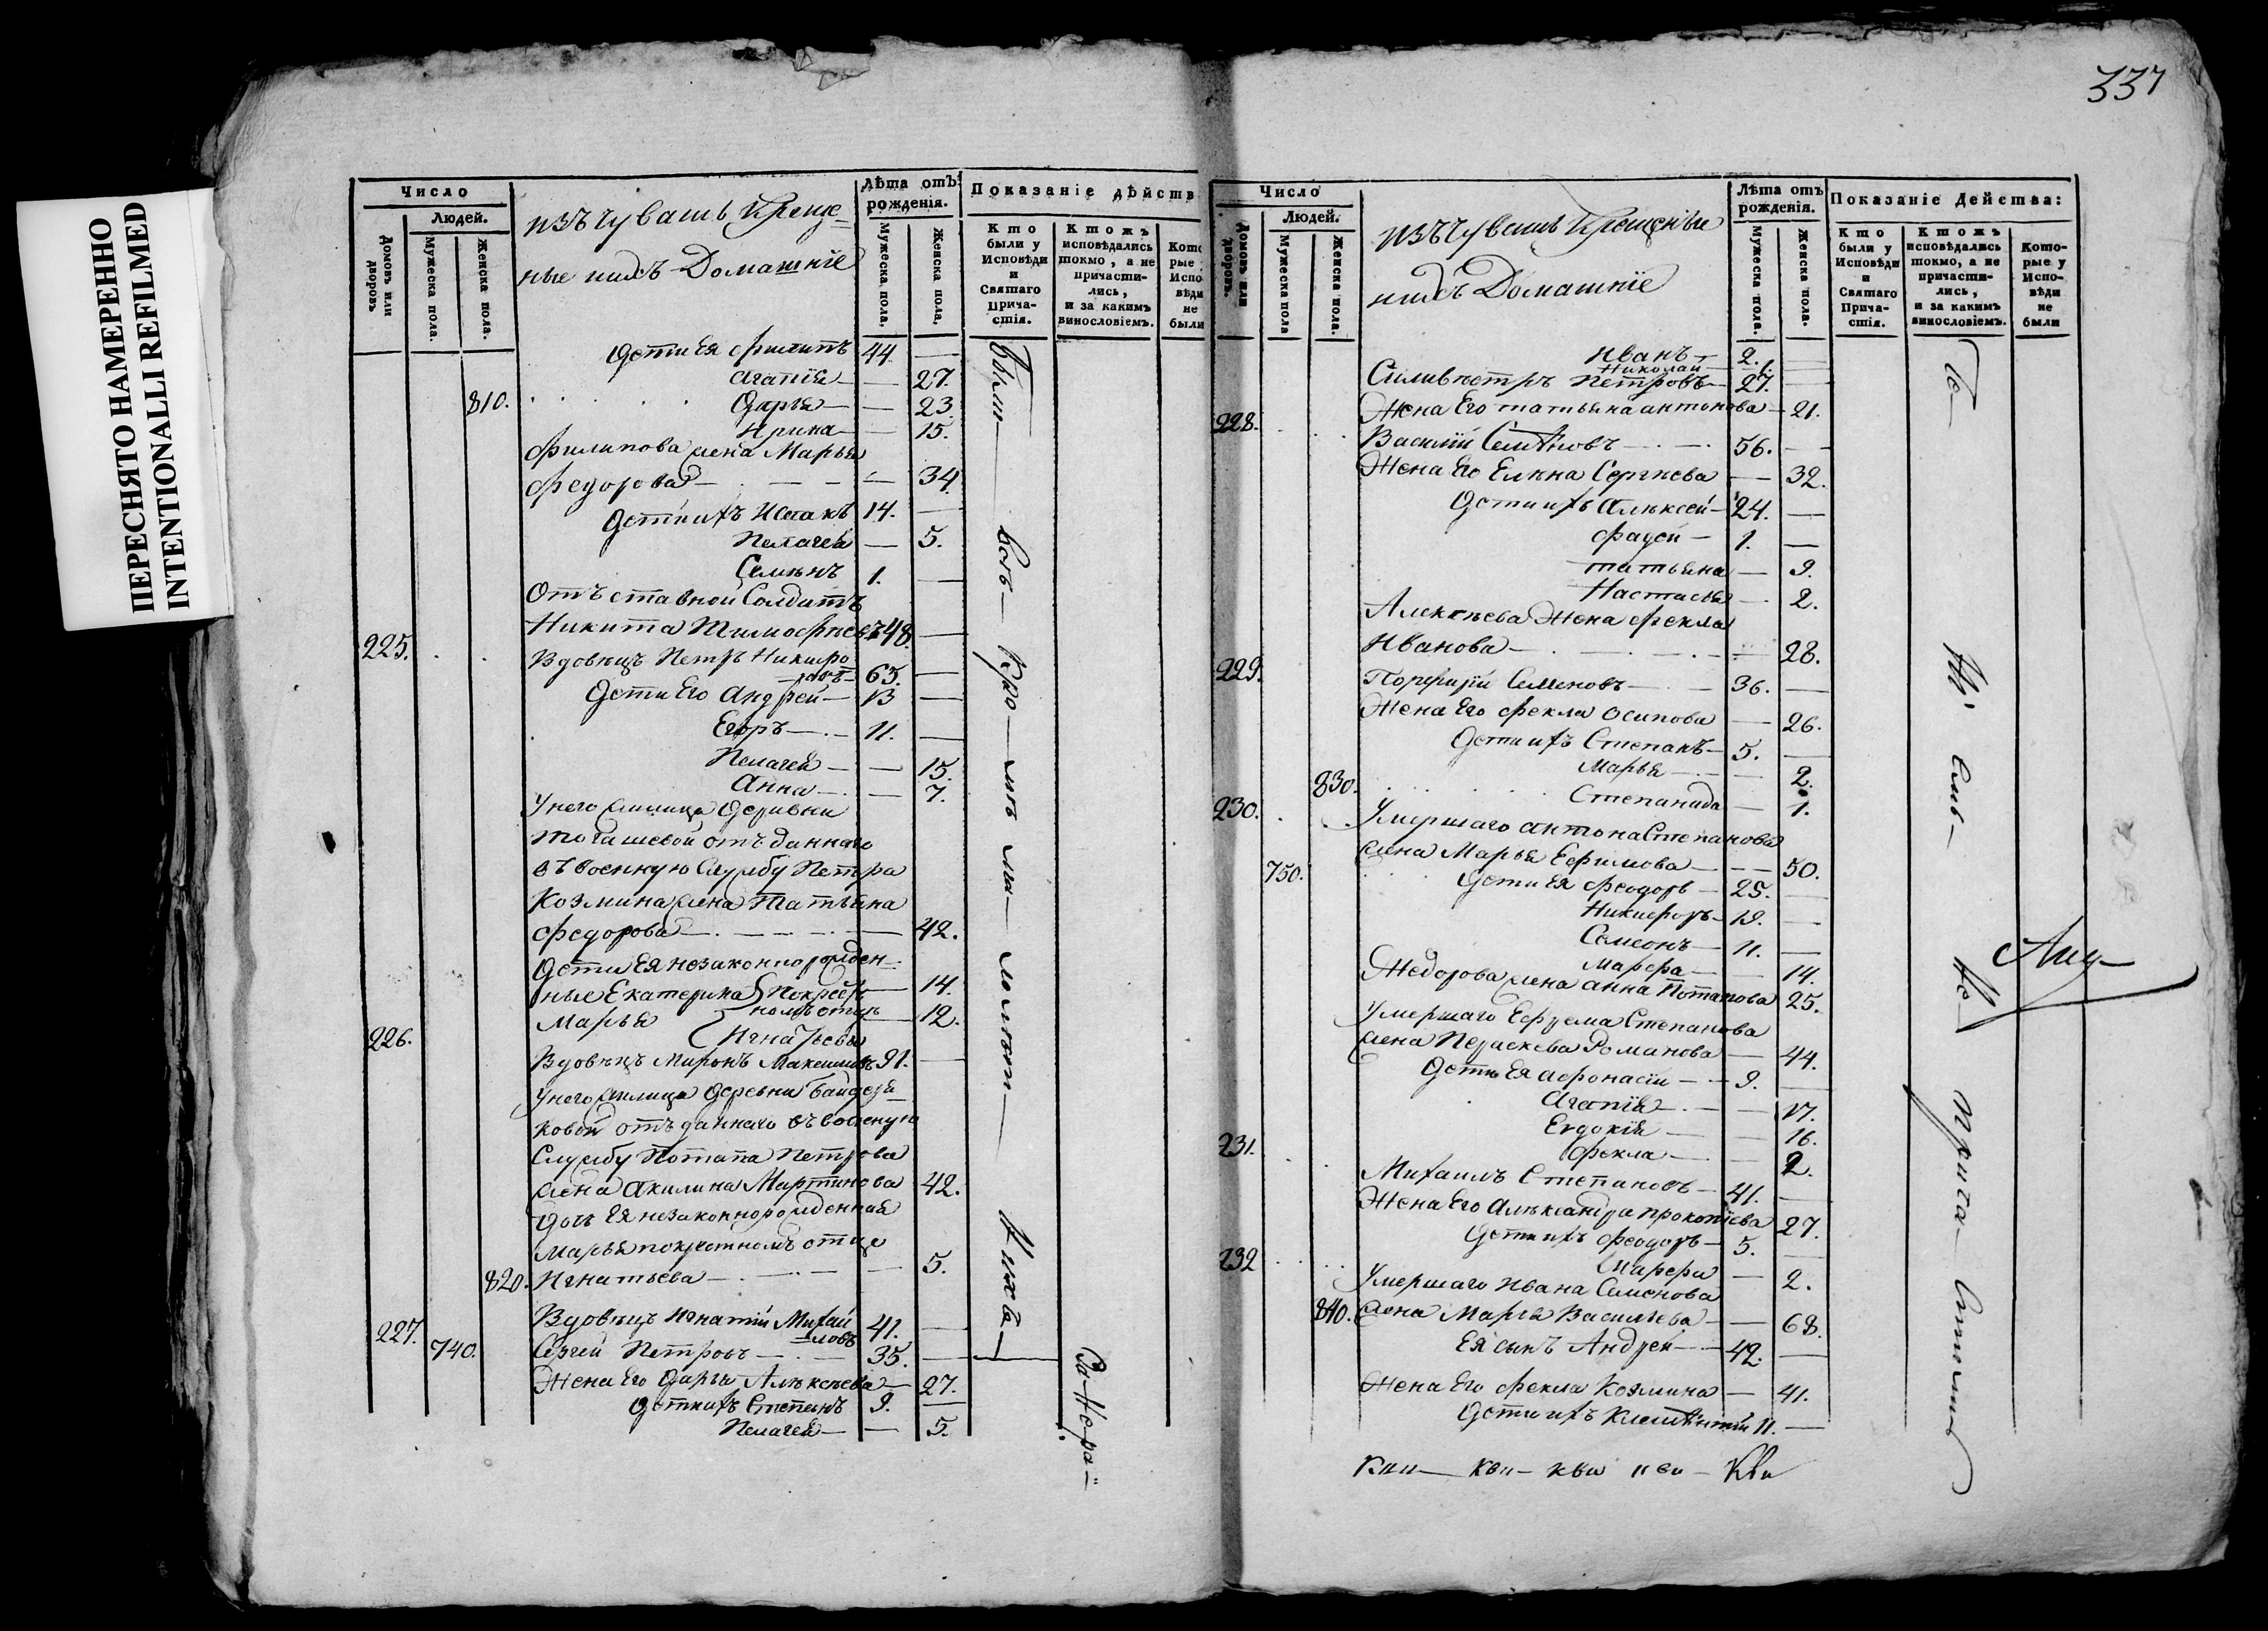 ПЕРЕСНЯТО НАМЕРЕННО
INTENTIONALLI REFILMED
337
Число
Людей.
Домовъ или дворовъ
Мужеска пола.
Женска пола.
изъ чувашъ креще-
ные и ихъ Домашніе
Лѣта отъ рожденія.
Мужеска пола,
Женска пола,
Показаніе дѣйств
Кто были у Исповѣди и Святаго Прича-стія.
Ктожъ исповѣдались токмо, а не причасти-лись, и за какимъ винословіемъ.
дети Ея Филипъ 44
Агапія 27.
810. Дарья 23.
Ирина 15.
Филипова жена Марья
Федорова 34
Дети ихъ Исаакъ 14.
Пелагея 5.
Семенъ 1.
Отъставной Солдатъ
Никита Тимофеевъ 48.
225. Вдовецъ Петръ Никифо
ровъ 65.
Дети Его Андрей 13
Егоръ 11.
Пелагея 15.
Анна 7.
У него жилица Деревни
отъ даннаго
въ военную Службу Петра
Козмина жена Татьяна
Федорова 42.
Дети Ея незаконно рожден-
ные Екатерина 14.
Марья 12.
226. Вдовецъ Миронъ Максимовъ 91.
У него жилица Деревни
отъ даннаго въ военную
Службу Потапа Петрова
жена Акилина Мартинова 42.
Дочь Ея незаконнорожденная
Марья по крестномъ отце
820. Игнатьева 5.
Вдовецъ Игнатій Михай
ловъ 41.
227. 740. Сергей Петровъ 35.
Жена Его Дарья Алексеева 27.
Дети ихъ Степанъ 9.
Пелагея 5.
Были
Число
Людей.
Домовъ или дворовъ.
Мужеска пола
Женска пола.
изъ чувашъ крещеные
и ихъ Домашніе
Лѣта отъ рожденія.
Мужеска пола.
Женска пола.
Показаніе Действа:
Кто были у Исповѣди и Святаго Прича-стія.
Ктожъ исповѣдались токмо, а не причасти-лись, и за какимъ винословіемъ.
Кото-рые у Испо-вѣди не были
Иванъ 2.
Николай 1.
Силивестръ Петровъ 27.
Жена Его татьяна антонова 21.
228. Василій Семеновъ 56.
Жена Его Елена Сергеева 32.
Дети ихъ Алексей 24.
Фадей 1.
татьяна 9.
Настасья 2.
Алексеева Жена Фекла
Иванова 28.
229. Порфирій Семеновъ 36.
Жена Его Фекла Осипова 26.
Дети ихъ Степанъ 5.
Марья 2.
830. Степанида 1.
230. Умершаго антона Степанова
жена Марья Ефимова 50.
750. Дети Ея Феодоръ 25.
Никифоръ 19.
Семеонъ 11.
Марфа 14.
Федорова жена анна Потапова 25.
Умершаго Ефрема Степанова
жена Параскева Романова 44.
Дети Ея Афонасій 9.
Агапія 17.
Евдокія 16.
Фекла 2.
231. Михаилъ Степановъ 41.
Жена Его Александра прокопіева 27.
Дети ихъ Феодоръ 5.
Марфа 2.
232 Умершаго Ивана Семенова
840. жена Марья Васильева 68.
Ея сынъ Андрей 42.
Жена Его Фекла Козмина 41.
Дети ихъ Климентій 11.